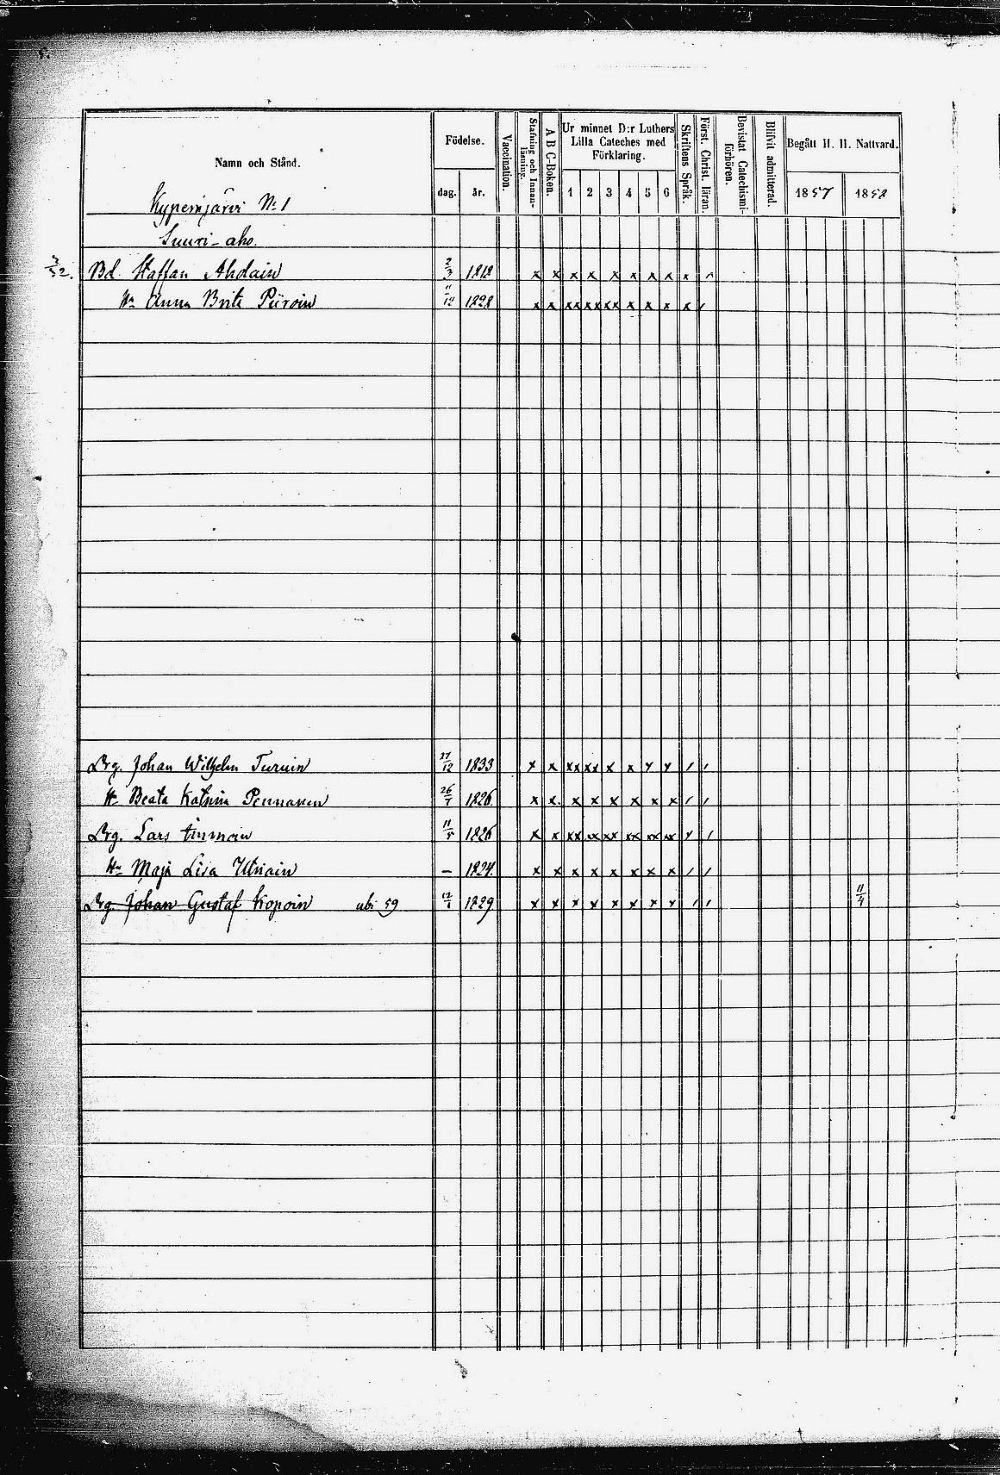 Namn och Stånd.
Födelse.
dag.
år.
Vaccination.
Stafning och Innan-
läsning.
A B C-Boken.
Ur minnet D:r Luthers
Lilla Cateches med
Förklaring.
1 2 3 4 5 6
Skriftens Språk.
Först. Christ. läran.
Bevistat Catechismi-
förhören.
Blifvit admitterad.
Begått H. H. Nattvard.
1857 1858
Kypemjärvi N:1
Suuri-aho.
Bd. Staffan Ahdain 2/3 1818 x x x x x x x x x
Hu Anna Brita Piiroin 11/12 1828 x x xx xx xx x x x x
Drg. Johan Wilhelm Turuin 27/12 1833 x x xx xx x x x x
H. Beata Katrina Pennanen 26/1 1826 x x x x x x x x
Drg. Lars Tinmain 11/5 1826 x x xx xx xx xx xx xx x
Hu Maja Lisa Utriain – 1824 x x x x x x x x
Drg. Johan Gustaf Kopoin ubi 59 12/1 1829 x x x x x x x x 11/4